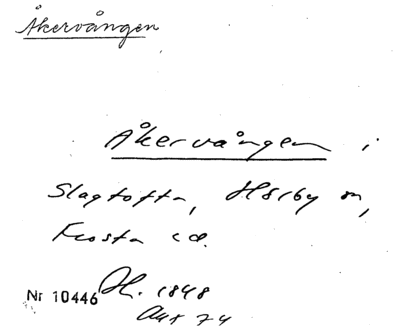 Åkervången
Åkervången i
Slagtofta, Hörby sn,
Frosta hd.
Nr 10446 H. 1848
Akt 74